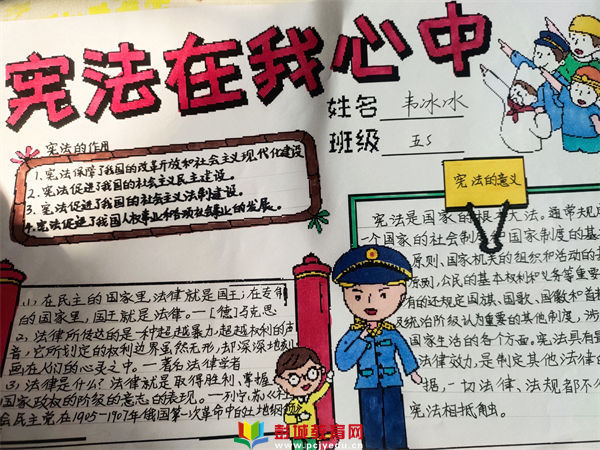 宪法在我心中
姓名 韦冰冰
班级 五5
宪法的作用
1.宪法保障了我国的改革开放和社会主义现代化建设
2.宪法促进了我国的社会主义民主建设。
3.宪法促进了我国的社会主义法制建设。
4.宪法促进了我国人权事业和各项社会事业的发展。
宪法的意义
宪法是国家的根本大法。通常规定
个国家的社会制 国家制度的基
原则、国家机关的组织和活动的基
原则,公民的基本权利和义务等重要
有的还规定国旗、国歌、国徽和首
及统治阶级认为重要的其他制度,涉
国家生活的各个方面,宪法具有最
法律效力,是制定其他法律的
据,一切法律、法规都不
宪法相抵触。
1、在民主的国家里,法律就是国王;在专制
的国家里,国王就是法律。—[德]马克思
2、法律所传达的是一种超越暴力,超越权利的声
音,它所划定的权利边界虽然无形,却深深地刻
画在人们的心灵之中。—著名法律学者
3)法律是什么?法律就是取得胜利、掌握
国家政权的阶级的意志的表现。—列宁、
会民主党在1905-1907年俄国第一次革命中的土地纲领
彭城教育网
www.pcjyedu.cn